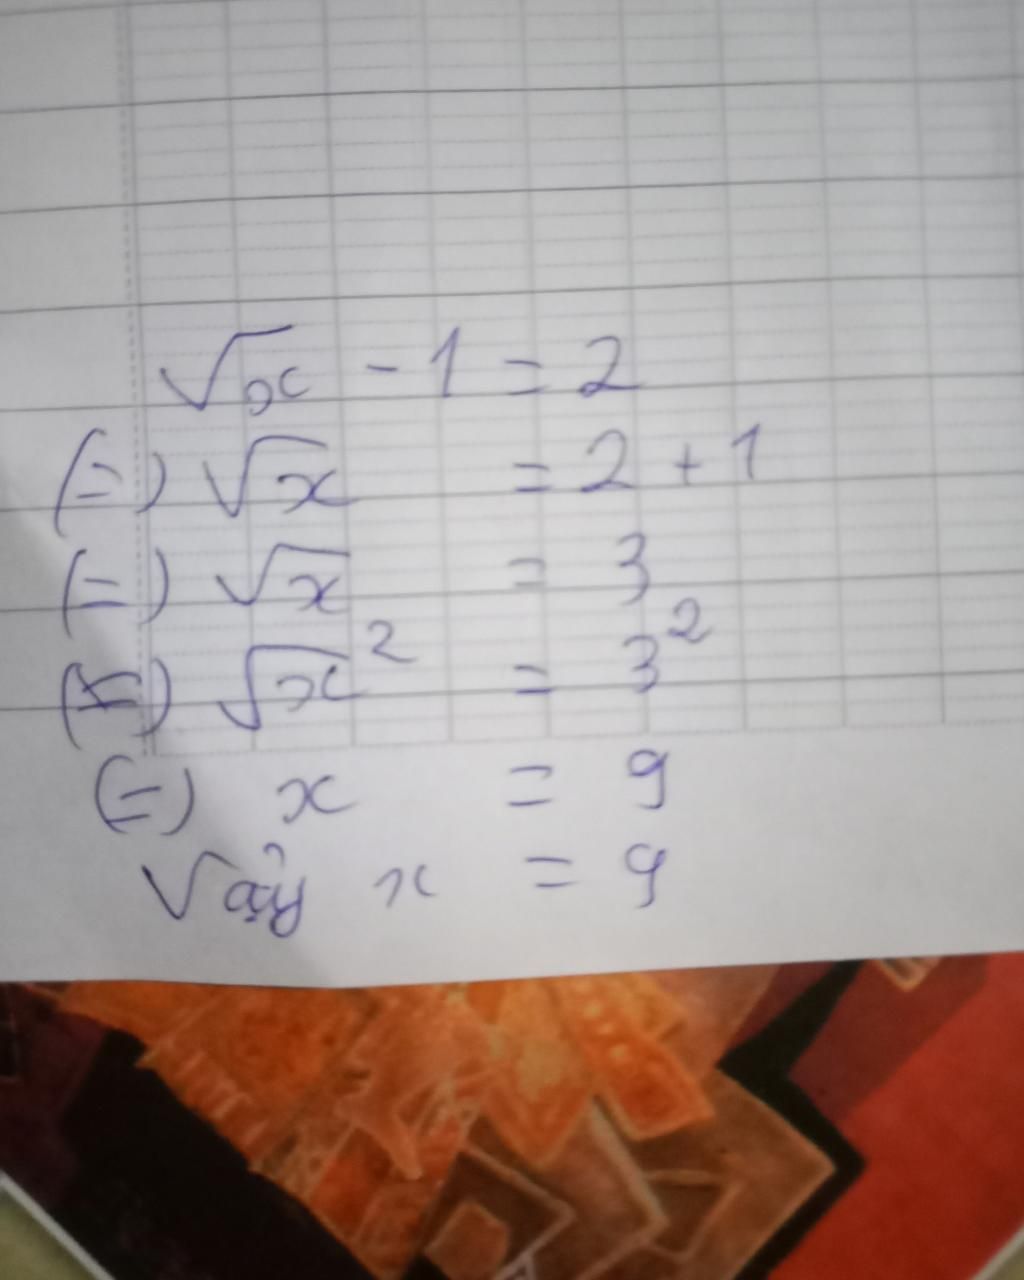 √x - 1 = 2
(=) √x = 2 + 1
(=) √x = 3
(=) √x² = 3²
(=) x = 9
Vậy x = 9